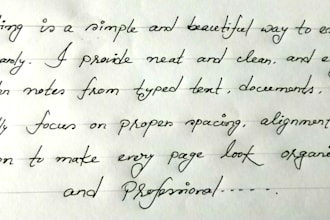 ing is a simple and beautiful way to e
andy. I provide neat and clean, and e
n notes from typed text, documents,
ly focus on proper spacing, alignment
on to make every page look organi
and Proffesional-----.